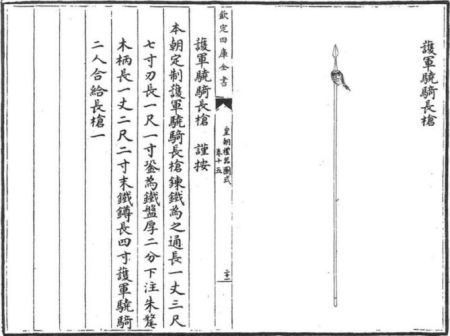 護軍驍騎長槍
欽定四庫全書
皇朝禮器圖式
卷十五
護軍驍騎長槍　謹按
本朝定制護軍驍騎長槍鍊鐵為之通長一丈三尺
七寸刃長一尺一寸銎為鐵盤厚二分下注朱氂
木柄長一丈二尺二寸末鐵鐏長四寸護軍驍騎
二人合給長槍一